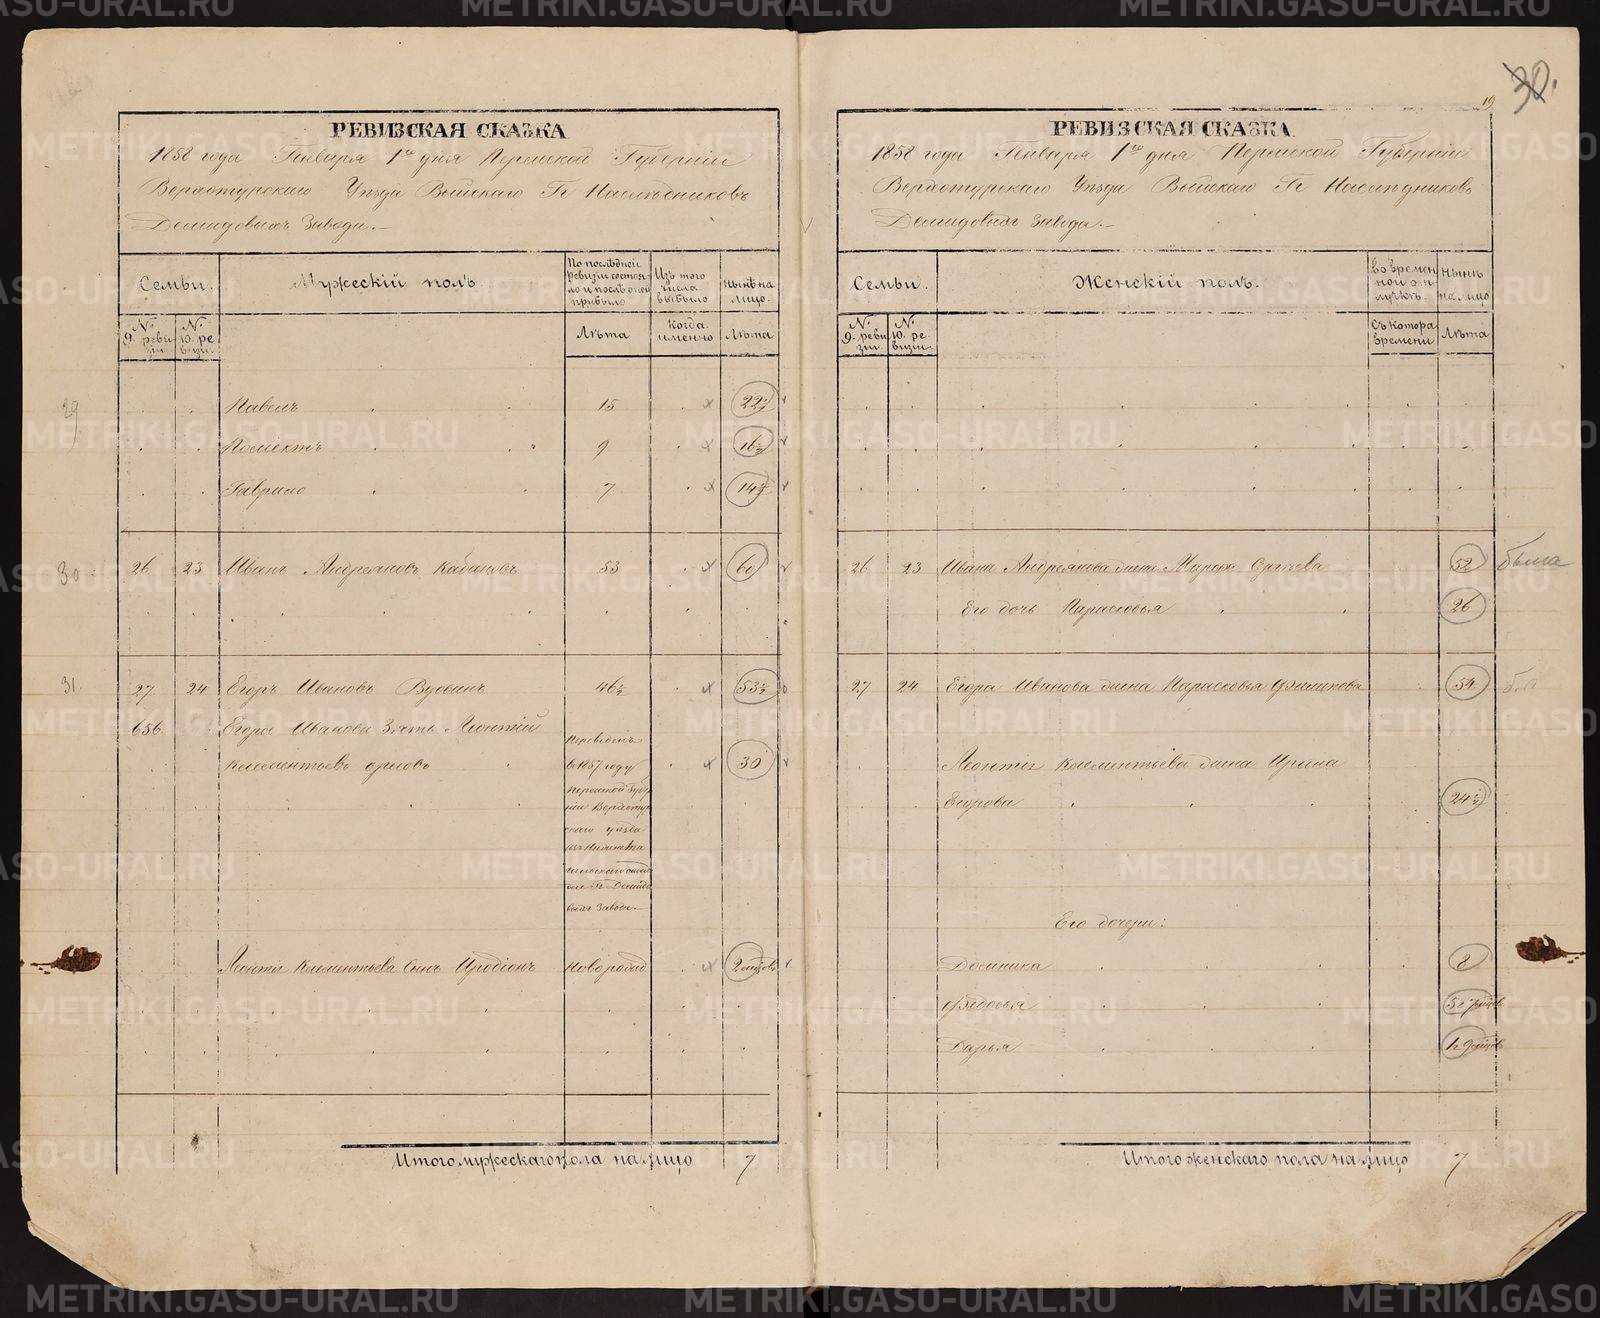 30.
19
РЕВИЗСКАЯ СКАЗКА
1858 года Генваря 1го дня Пермской Губерніи
Верхотурскаго Уѣзда Выйскаго Гг Наслѣдниковъ
Демидовыхъ Завода.
Семьи.
Мужескій полъ
По послѣдней ревизіи состояло и послѣ оной прибыло
Изъ того числа выбыло
Нынѣ на лицо.
№ 9. ревизіи
№ 10. ревизіи
Лѣта
Когда именно
Лѣта
29
Павелъ 15 22½
9 16½
Гаврило 7 14½
30 26 23 Иванъ Андреяновъ Кабановъ 53 60
31. 27 24 Егоръ Ивановъ 46½ 53½
656 Егора Иванова Зять Леонтій
Клементьевъ Орловъ 30
Переведенъ
въ 1857 году
Пермской Губер
ніи Верхотур
скаго уѣзда
Гг Демидо
выхъ Завода.
Леонтія Клементьева Сынъ Иродіонъ Новорожд 2 мѣсяцовъ
Итого мужескаго пола на лицо 7
РЕВИЗСКАЯ СКАЗКА
1858 года Генваря 1го дня Пермской Губерніи
Верхотурскаго Уѣзда Выйскаго Гг Наслѣдниковъ
Демидовыхъ Завода.
Семьи.
Женскій полъ.
Во временной отлучкѣ.
Нынѣ на лицо
№ 9. ревизіи
№ 10. ревизіи
Съ котора времени
Лѣта
26 23 Ивана Андреянова жена Марфа Сергѣева 52 была
Его дочь Парасковья 26
27 24 Егора Иванова жена Парасковья Филипова 54
Леонтія Клементьева жена Ирина
Егорова 24½
Его дочери:
Домника 8
Федосья
Дарья
Итого женскаго пола на лицо 7
METRIKI.GASO-URAL.RU